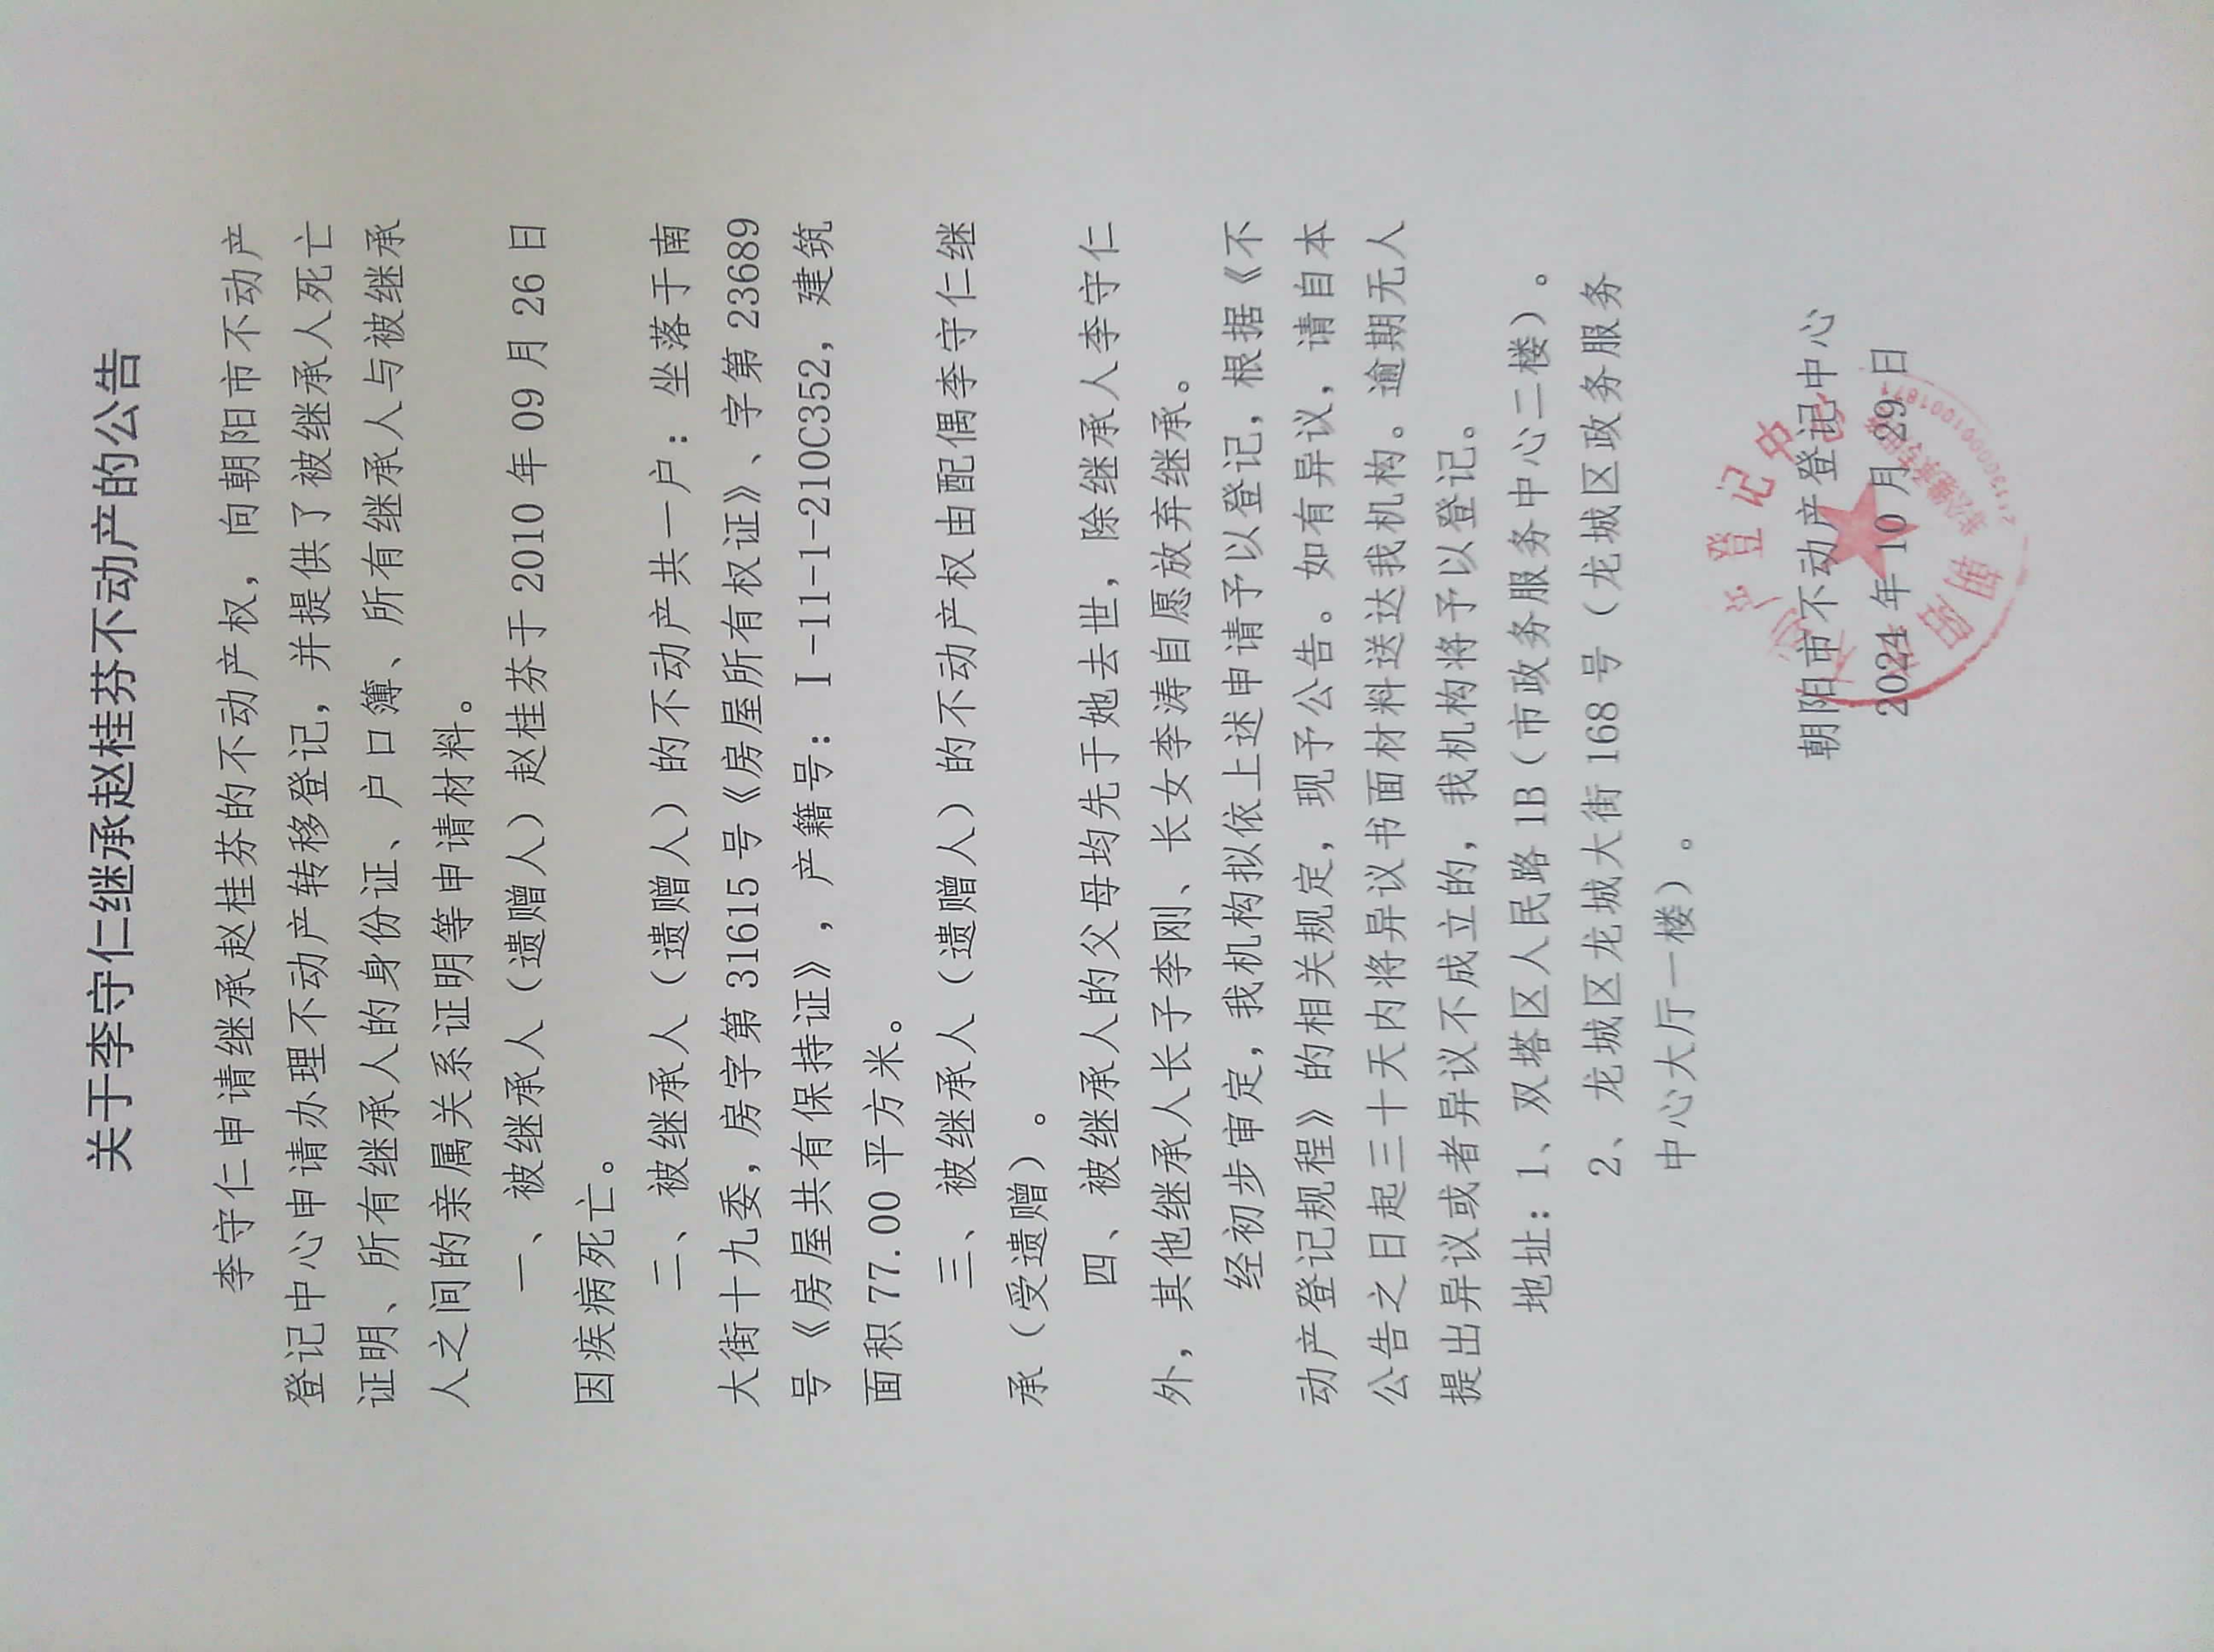 关于李守仁继承赵桂芬不动产的公告
李守仁申请继承赵桂芬的不动产权，向朝阳市不动产
登记中心申请办理不动产转移登记，并提供了被继承人死亡
证明、所有继承人的身份证、户口簿、所有继承人与被继承
人之间的亲属关系证明等申请材料。
一、被继承人（遗赠人）赵桂芬于 2010 年 09 月 26 日
因疾病死亡。
二、被继承人（遗赠人）的不动产共一户：坐落于南
大街十九委，房字第 31615 号《房屋所有权证》、字第 23689
号《房屋共有保持证》，产籍号：Ⅰ-11-1-210C352，建筑
面积 77.00 平方米。
三、被继承人（遗赠人）的不动产权由配偶李守仁继
承（受遗赠）。
四、被继承人的父母均先于她去世，除继承人李守仁
外，其他继承人长子李刚、长女李涛自愿放弃继承。
经初步审定，我机构拟依上述申请予以登记，根据《不
动产登记规程》的相关规定，现予公告。如有异议，请自本
公告之日起三十天内将异议书面材料送达我机构。逾期无人
提出异议或者异议不成立的，我机构将予以登记。
地址：1、双塔区人民路 1B（市政务服务中心二楼）。
2、龙城区龙城大街 168 号（龙城区政务服务
中心大厅一楼）。
朝阳市不动产登记中心
2024 年 10 月 29 日